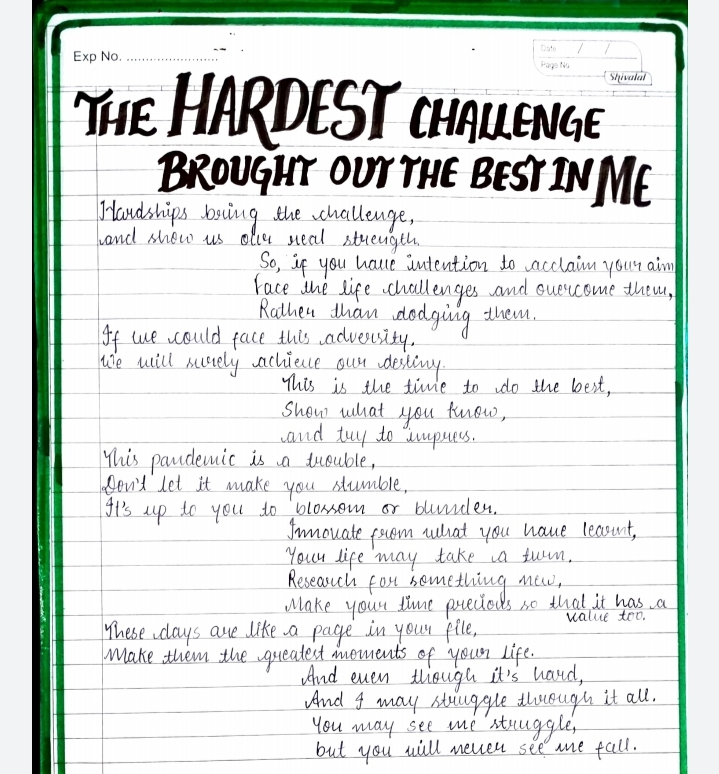 Exp No. ........................
Date / /
Page No.
Shivalal
THE HARDEST CHALLENGE
BROUGHT OUT THE BEST IN ME
Hardships bring the challenge,
and show us our real strength.
So, if you have intention to acclaim your aim
Face the life challenges and overcome them,
Rather than dodging them.
If we could face this adversity,
We will surely achieve our destiny.
This is the time to do the best,
Show what you know,
and try to impress.
This pandemic is a trouble,
Don't let it make you stumble,
It's up to you to blossom or blunder.
Innovate from what you have learnt,
Your life may take a turn.
Research for something new,
Make your time precious so that it has a
value too.
These days are like a page in your file,
Make them the greatest moments of your life.
And even though it's hard,
And I may struggle through it all.
You may see me struggle,
but you will never see me fall.